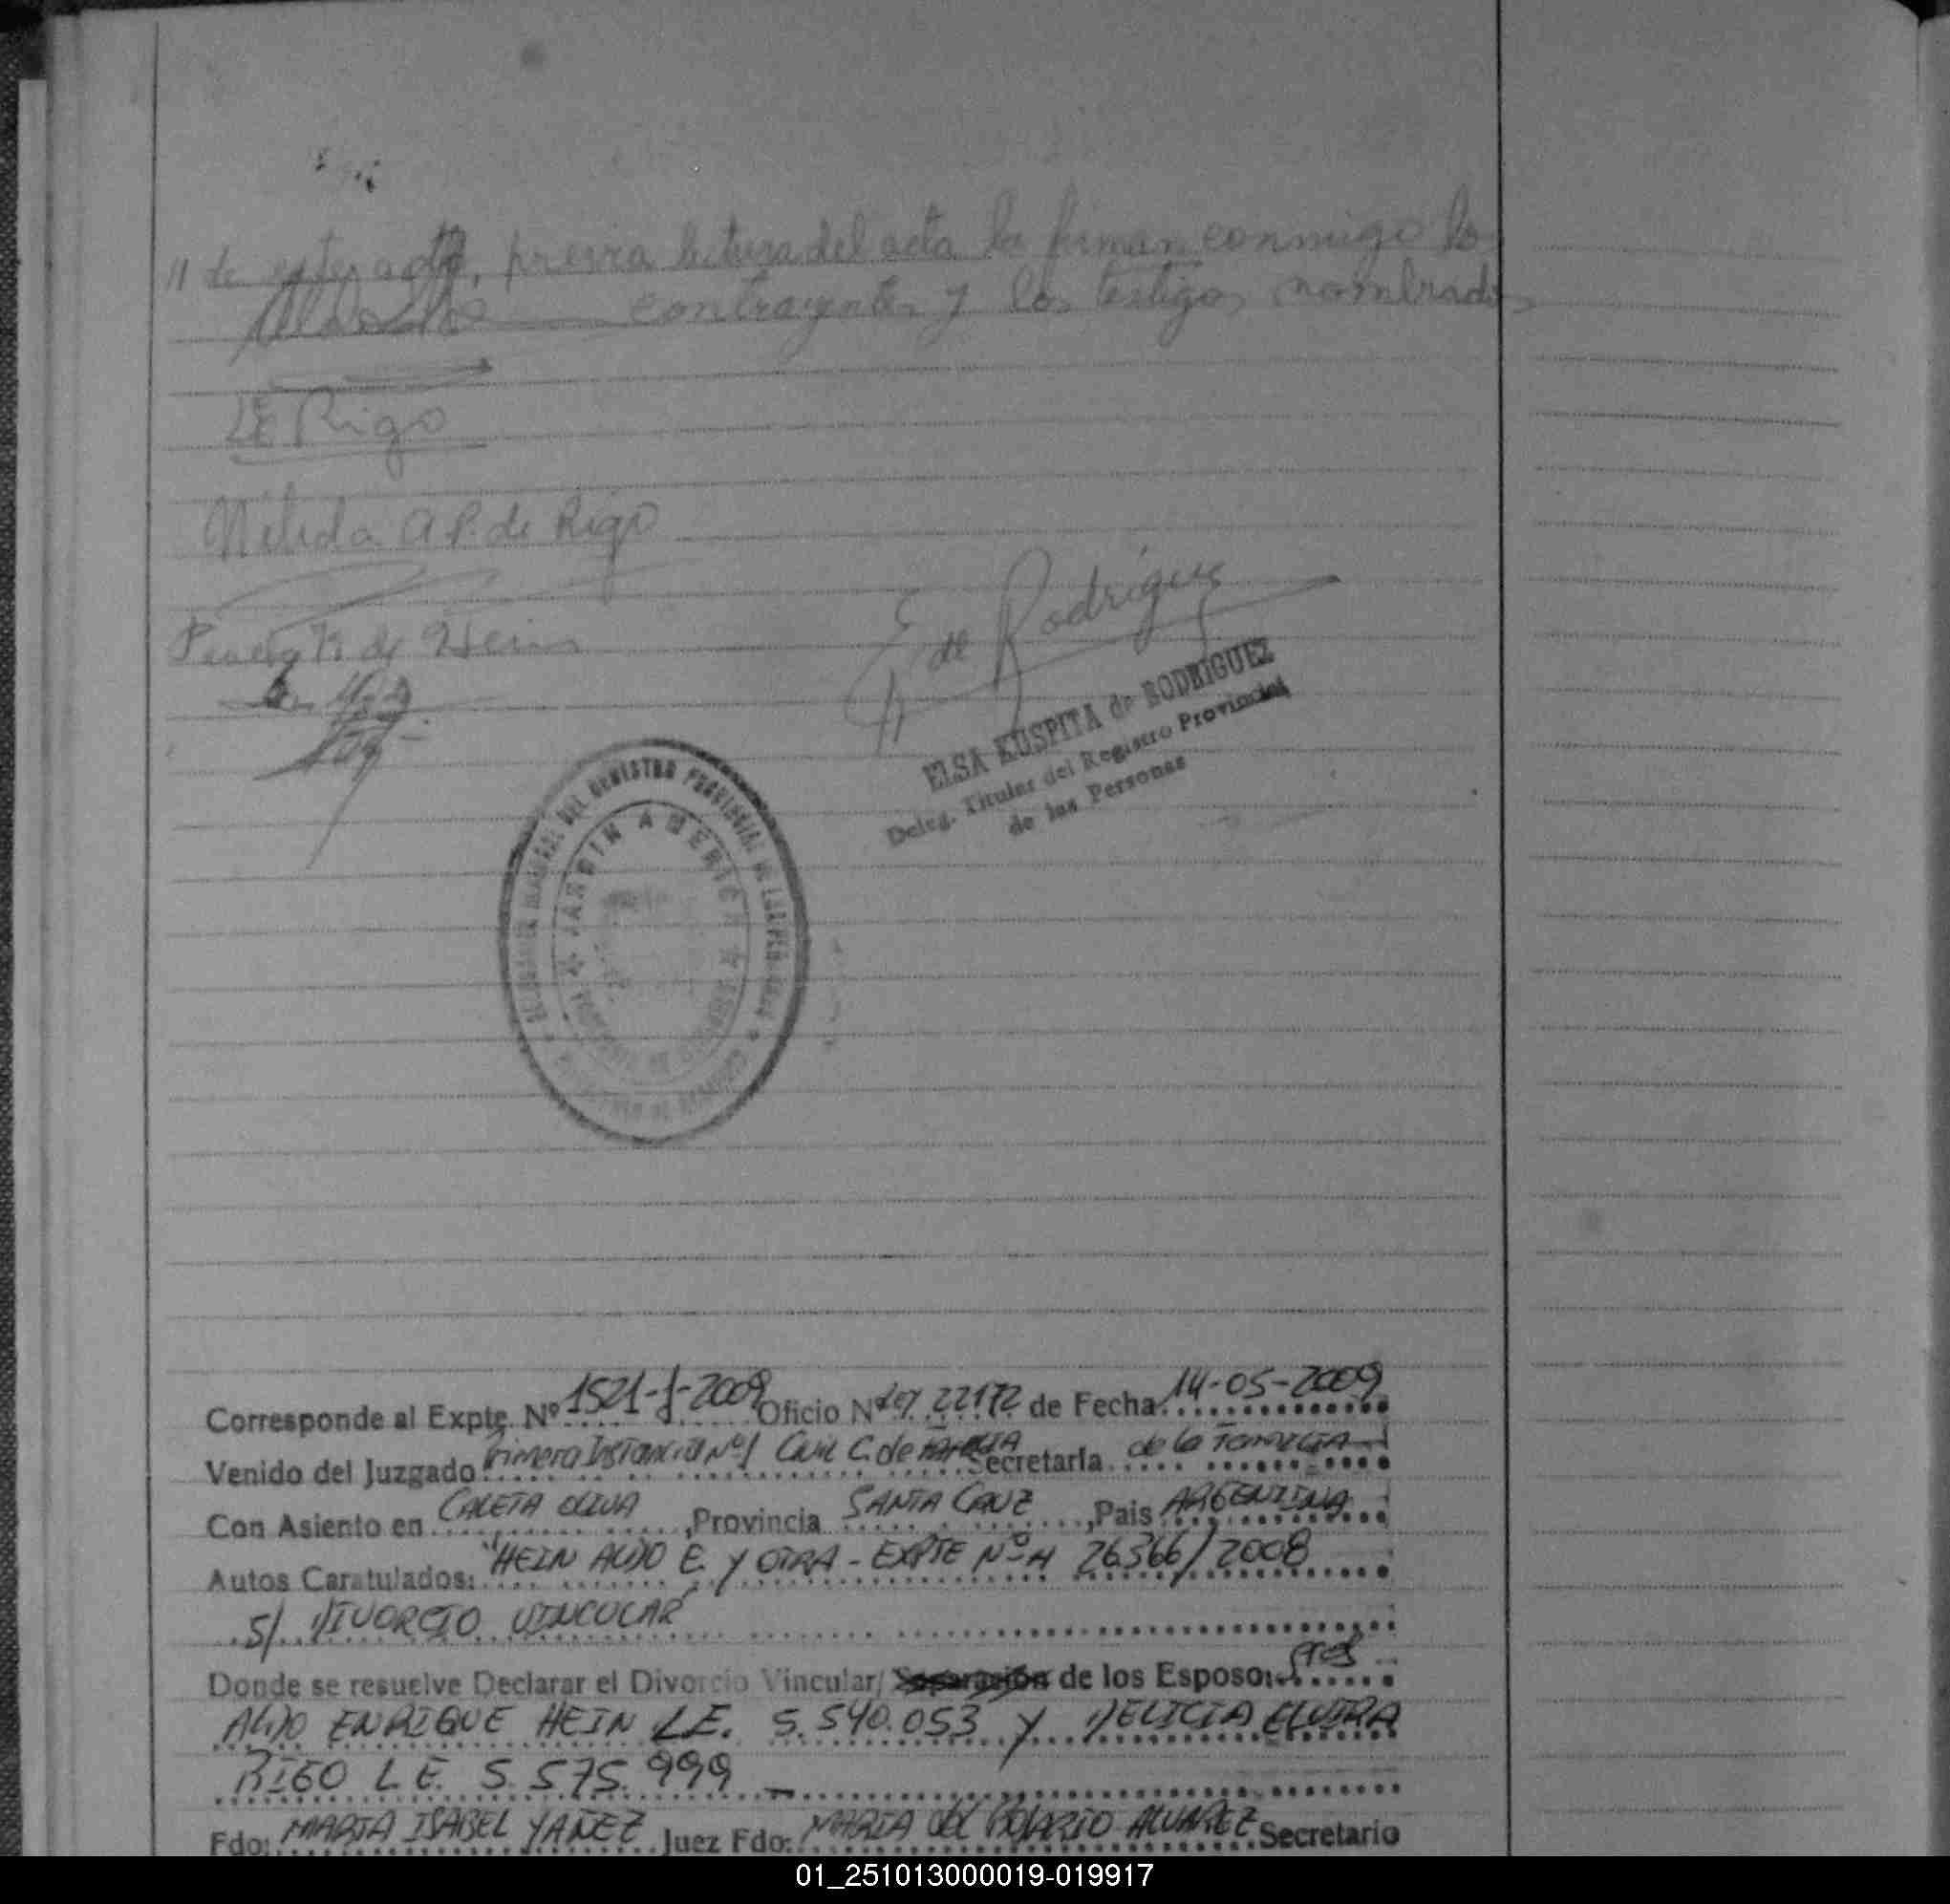 11 de este acto, previa lectura del acta la firman conmigo los
contrayentes y los testigos nombrados
LE Rigo
Nélida A P. de Rigo
de Hein
E de Rodríguez
ELSA KUSPITA de RODRIGUEZ
Deleg. Titular del Registro Provincial
de las Personas
DEL REGISTRO PROVINCIAL DE LAS PERSONAS
JARDIN AMERICA
Corresponde al Expte. Nº 1521-J-2009 Oficio Nº Ley 22172 de Fecha 14-05-2009
Venido del Juzgado Primera Instancia Nº1 Civil C. de Familia Secretaria de la Familia
Con Asiento en CALETA OLIVIA, Provincia SANTA CRUZ, Pais ARGENTINA
Autos Caratulados: "HEIN ALDO E. y OTRA - EXPTE Nº H 26366/2008
S/ DIVORCIO VINCULAR"
Donde se resuelve Declarar el Divorcio Vincular/ Separación de los Esposos: Sres
ALDO ENRIQUE HEIN L.E. 5.540.053 y DELICIA ELVIRA
RIGO L E. 5.575.999
Fdo: MARTA ISABEL YAÑEZ Juez Fdo: MARIA del ROSARIO ALVAREZ Secretario
01_251013000019-019917